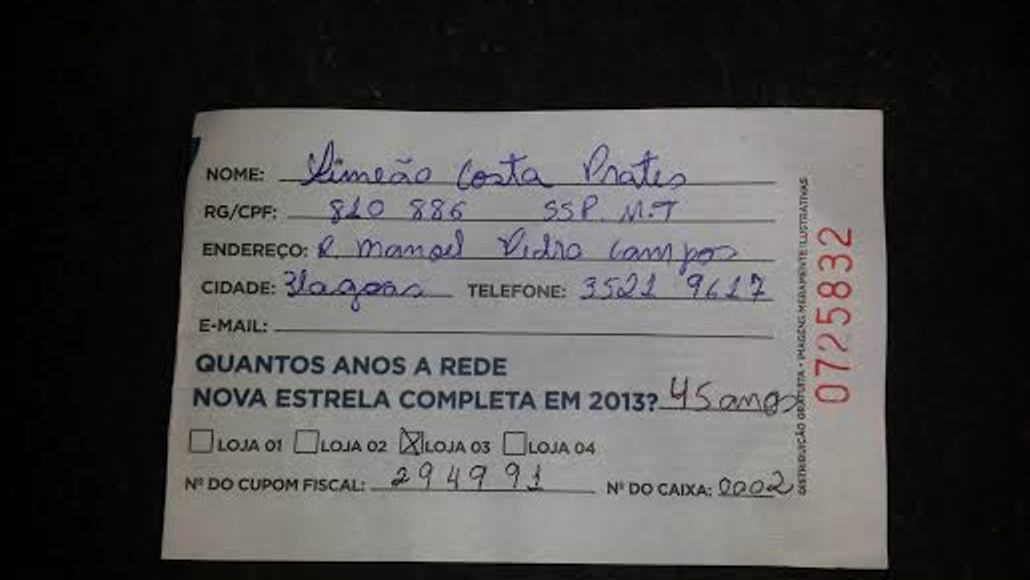 NOME: Simeão Costa Prates
RG/CPF: 810 886 SSP. M.T
ENDEREÇO: R. Manoel Pedro Campos
CIDADE: 3lagoas TELEFONE: 3521 9617
E-MAIL:
QUANTOS ANOS A REDE
NOVA ESTRELA COMPLETA EM 2013? 45 anos
LOJA 01 LOJA 02 X LOJA 03 LOJA 04
Nº DO CUPOM FISCAL: 294991 Nº DO CAIXA: 0002
DISTRIBUIÇÃO GRATUITA • IMAGENS MERAMENTE ILUSTRATIVAS
0725832